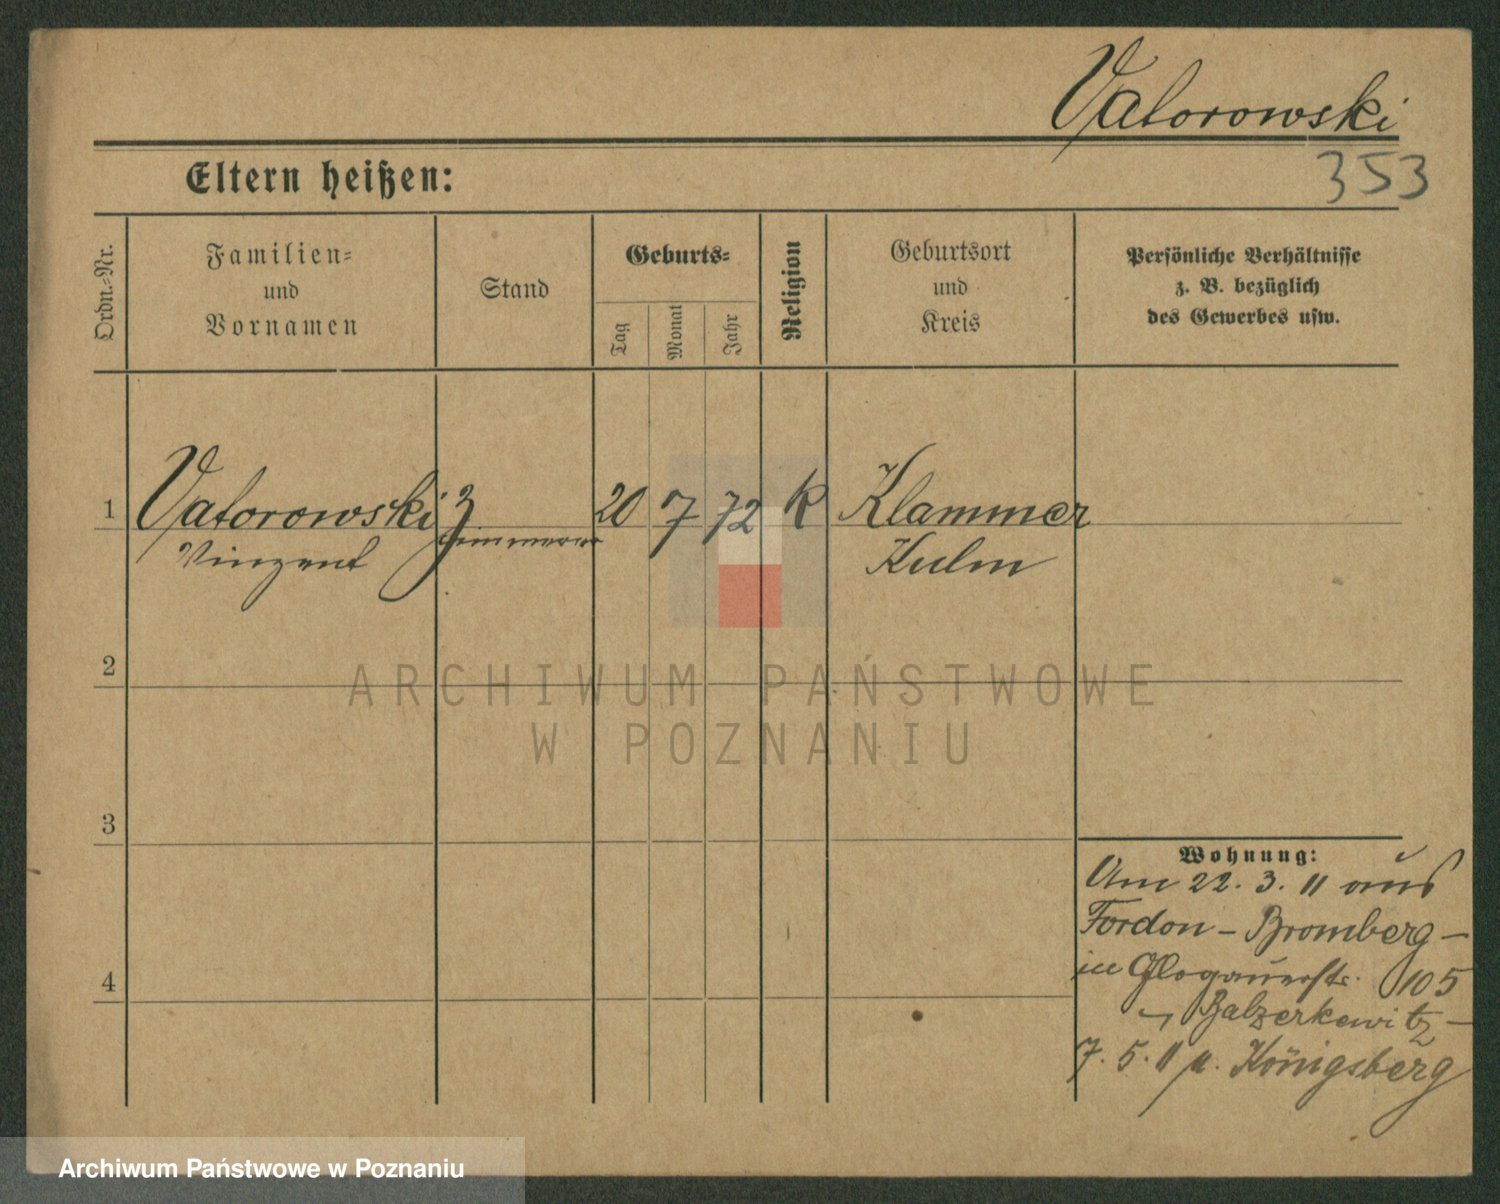 Vatorowski
353
Eltern heißen:
Ordn.-Nr.
Familien-
und
Vornamen
Stand
Geburts-
Tag
Monat
Jahr
Religion
Geburtsort
und
Kreis
Persönliche Verhältnisse
z. B. bezüglich
des Gewerbes usw.
1 Vatorowski 20 7 72 K Klammer
Vinzent Kulm
2
3
4
Wohnung:
Am 22. 3. 11 aus
Fordon - Bromberg -
in Glogauerstr. 105
Balzerkewitz -
7. 5. 11 n. Königsberg
ARCHIWUM PAŃSTWOWE
W POZNANIU
Archiwum Państwowe w Poznaniu